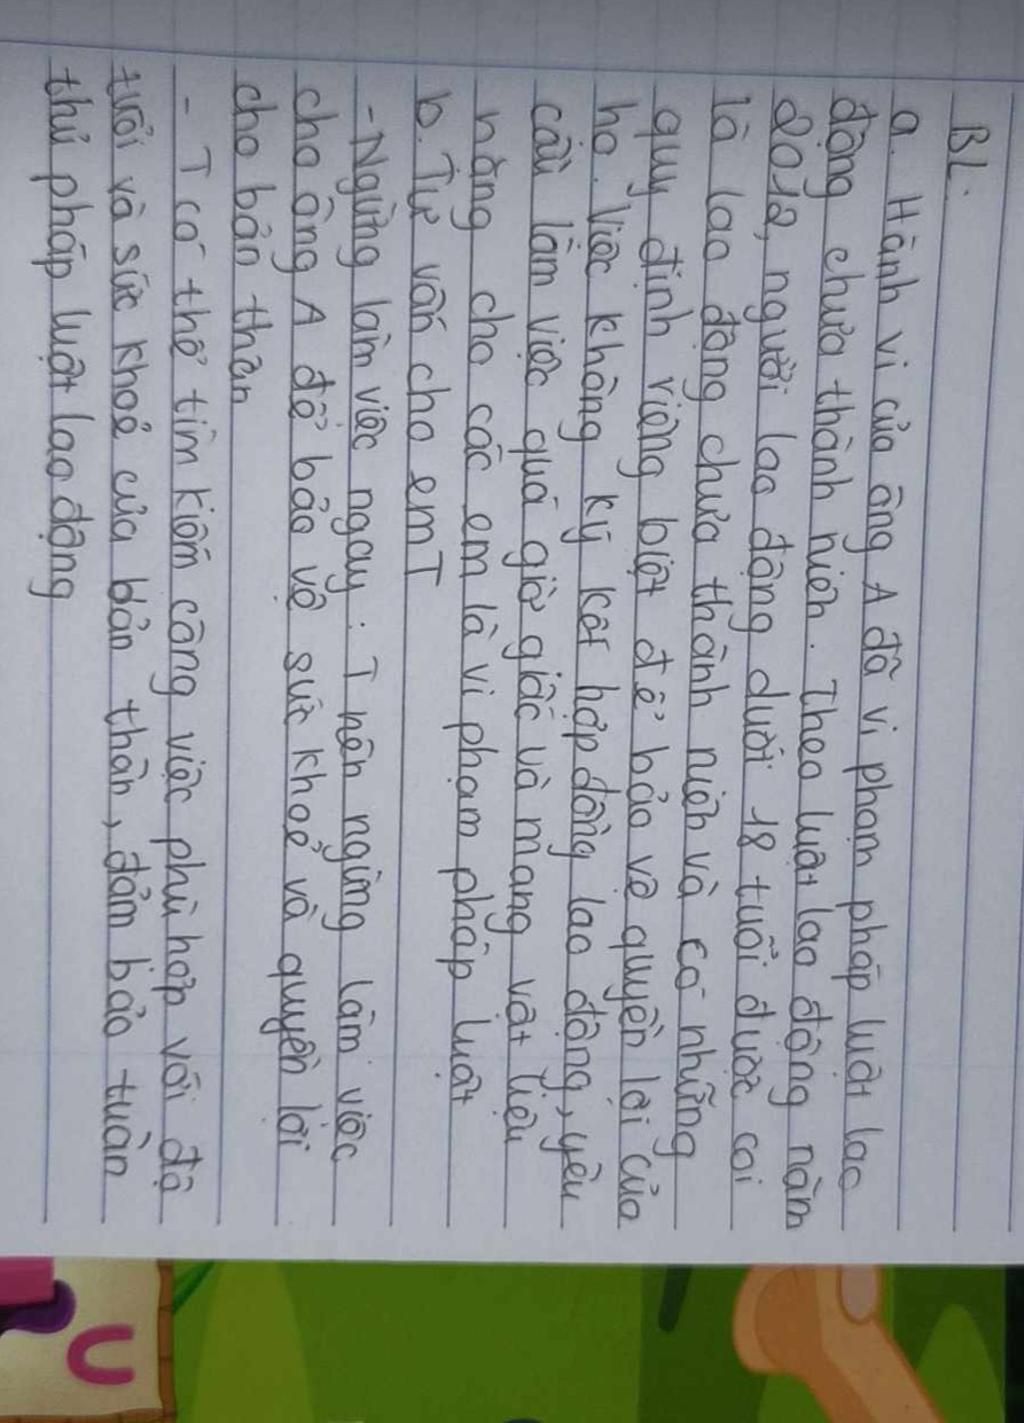 BL:
a. Hành vi của ông A đã vi phạm pháp luật lao
động chưa thành niên. Theo luật lao động năm
2012, người lao động dưới 18 tuổi được coi
là lao động chưa thành niên và có những
quy định riêng biệt để bảo vệ quyền lợi của
họ. Việc không ký kết hợp đồng lao động, yêu
cầu làm việc quá giờ giấc và mang vật liệu
nặng cho các em là vi phạm pháp luật
b. Tư vấn cho em T
- Ngừng làm việc ngay: T nên ngừng làm việc
cho ông A để bảo vệ sức khoẻ và quyền lợi
cho bản thân
- T có thể tìm kiếm công việc phù hợp với độ
tuổi và sức khoẻ của bản thân, đảm bảo tuân
thủ pháp luật lao động
U